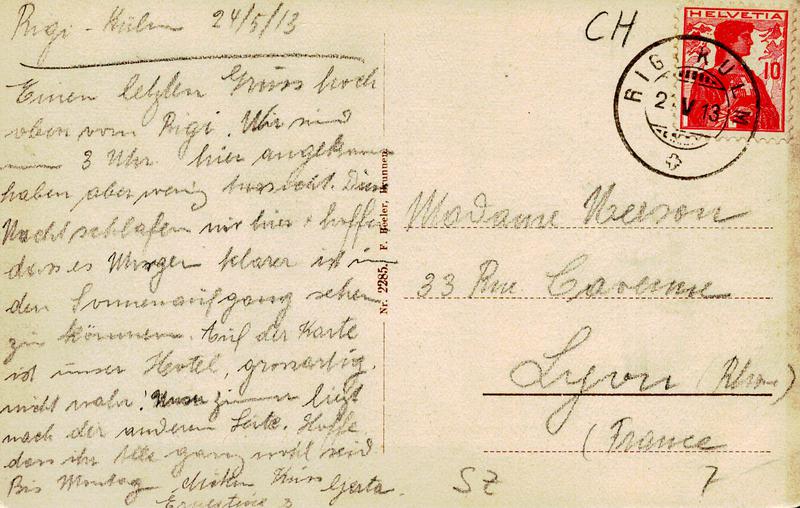 Rigi-Kulm 24/5/13
Einen letzten Gruss hoch
oben vom Rigi. Wir sind
3 Uhr hier angekommen
haben aber wenig Aussicht. Diese
Nacht schlafen wir hier + hoffen
dass es Morgen klarer ist um
den Sonnenaufgang sehen
zu können. Auf der Karte
ist unser Hotel, grossartig,
nicht wahr! Unser Zimmer liegt
nach der anderen Seite. Hoffe
dass ihr Alle ganz wohl seid
Bis Montag dicken Kuss Gerta.
Ernestine
Nr. 2285. F. Beeler, Brunnen.
CH
HELVETIA
10
RIGI KULM
2 V 13
Madame
33 Rue
Lyon (Rhone)
(France
SZ
7